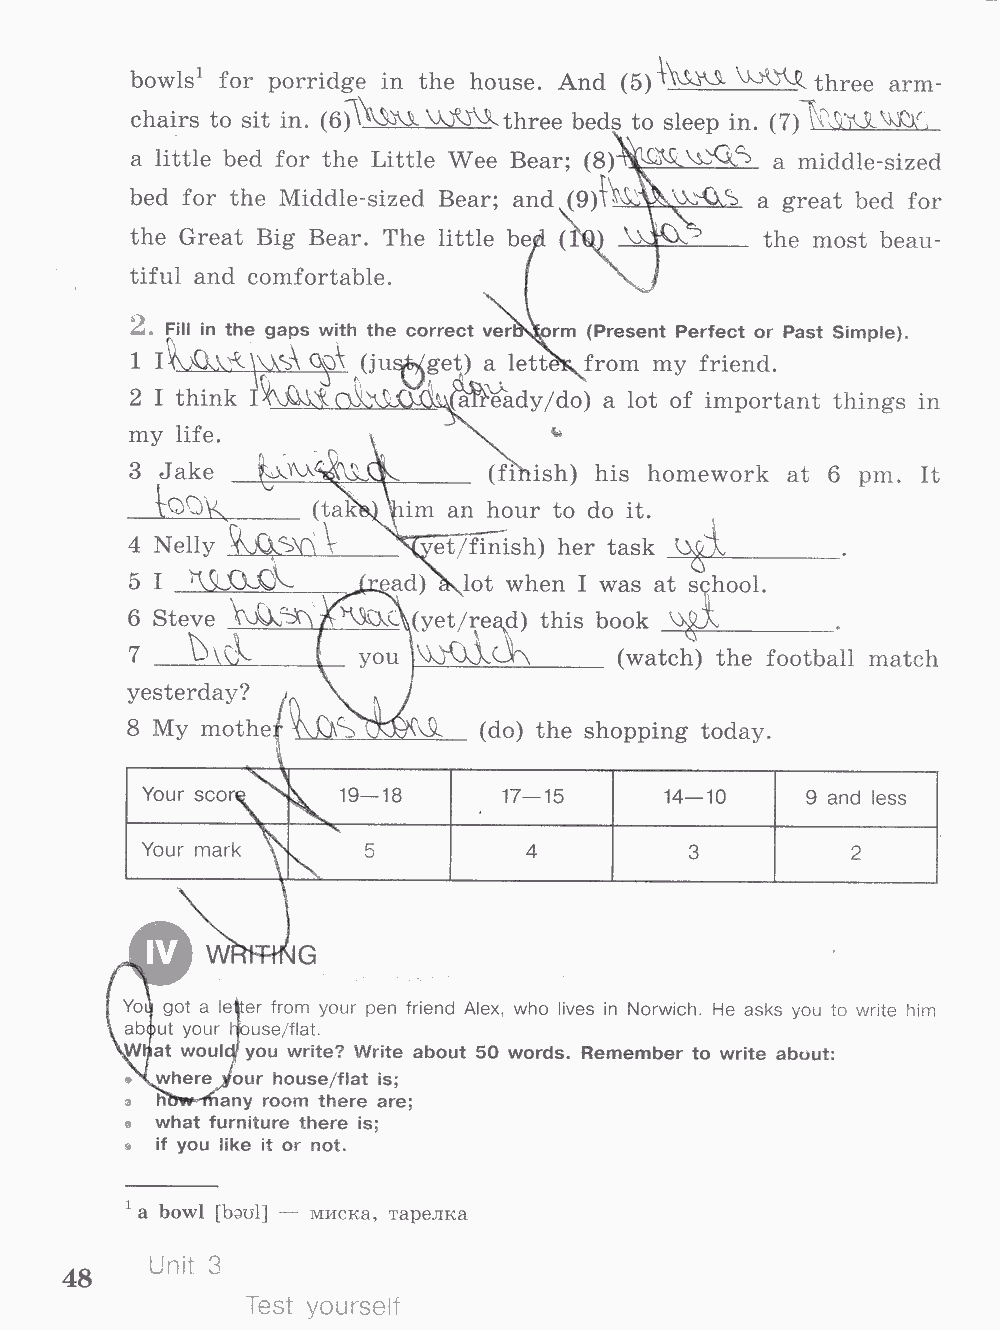 bowls¹ for porridge in the house. And (5) there were three arm-
chairs to sit in. (6) There were three beds to sleep in. (7) There was
a little bed for the Little Wee Bear; (8) there was a middle-sized
bed for the Middle-sized Bear; and (9) there was a great bed for
the Great Big Bear. The little bed (10) was the most beau-
tiful and comfortable.
2. Fill in the gaps with the correct verb form (Present Perfect or Past Simple).
1 I have just got (just/get) a letter from my friend.
2 I think I have already done (already/do) a lot of important things in
my life.
3 Jake finished (finish) his homework at 6 pm. It
took (take) him an hour to do it.
4 Nelly hasn't (yet/finish) her task yet.
5 I read (read) a lot when I was at school.
6 Steve hasn't read (yet/read) this book yet.
7 Did you watch (watch) the football match
yesterday?
8 My mother has done (do) the shopping today.
Your score 19—18 17—15 14—10 9 and less
Your mark 5 4 3 2
IV WRITING
You got a letter from your pen friend Alex, who lives in Norwich. He asks you to write him
about your house/flat.
What would you write? Write about 50 words. Remember to write about:
• where your house/flat is;
• how many room there are;
• what furniture there is;
• if you like it or not.
¹ a bowl [bəʊl] — миска, тарелка
48 Unit 3
Test yourself